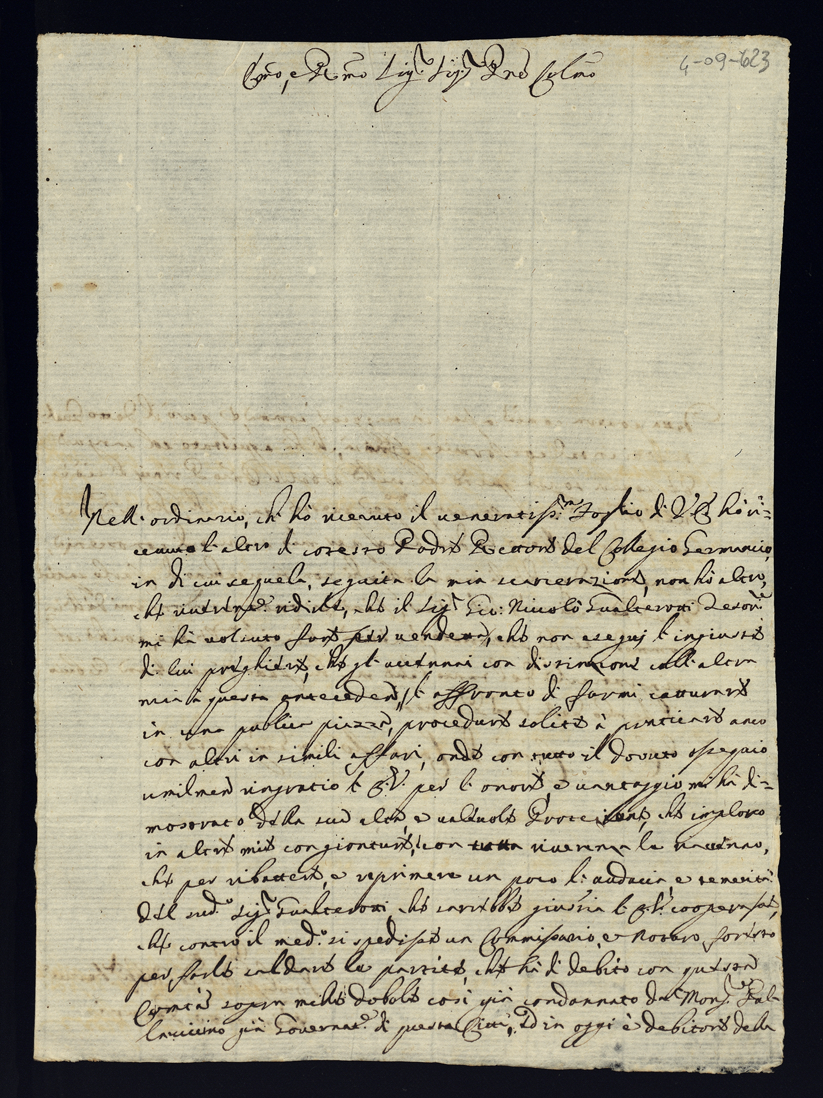 4-09-623
Em̃o, e Re m̃o Sig.r Sig.r Pñe Colmo
Nell'ordinario, che hò riceuuto il ueneratiss.mo Foglio di V.E. hò ri=
ceuuto l'altro di cotesto Padre Rettore del Collegio Germanico,
in di cui sequela, seguita la mia scarcerazione, non hò altro,
che ridirle, che il Sig.r Gio: Niccolò Gualterotti Tesor.e
mi hà uolsuto fare per uendetta, che non eseguij l'ingiuste
di lui preghiere, che gl'auuenni con distinzione coll'altra
mia à questa antecedente, l'affronto di farmi catturare
in una publica piazza, procedure solite à praticare anco
con altri in simili affari, onde con tutto il douuto ossequio
umilmente ringratio l'E.V. per l'onore, e uantaggio mi hà di=
mostrato della sua alta, e ualeuole Protezione, che imploro
in altre mie congionture, con tutta riuerenza le
che per ribattere, e reprimere un poco l'audacia, e temerità
del sud.o Sig.r Gualterotti, che sarebbe giustizia l'E.V. cooperasse,
che contro il med.o si spedisse un Commissario, e Notaro forasto
per farle saldare le partite, che hà di debito con questa
Comtà sopra mille doble così già condannato da Mons.r Pal=
lauicino già Gouernat.e di questa Città, Ed in oggi è debitore della